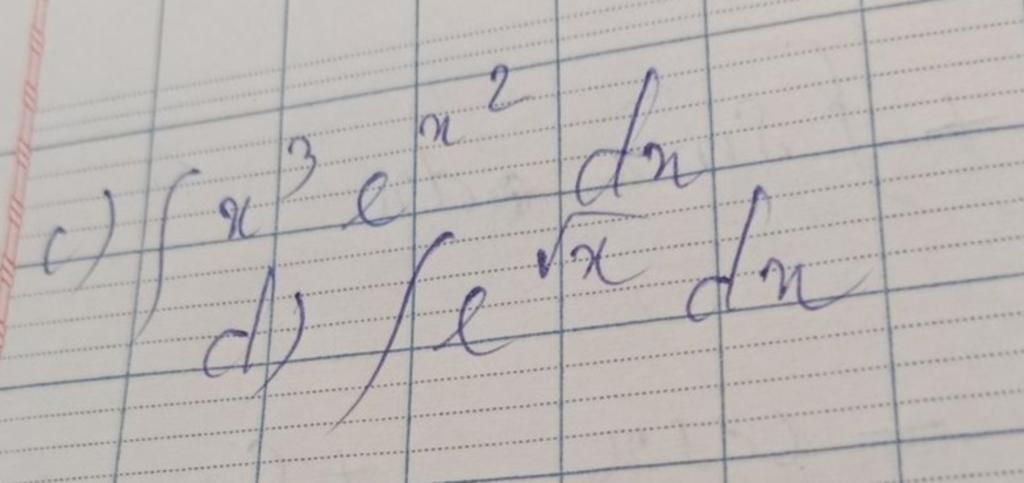 c) ∫ x³ e^{x²} dx
d) ∫ e^{√x} dx